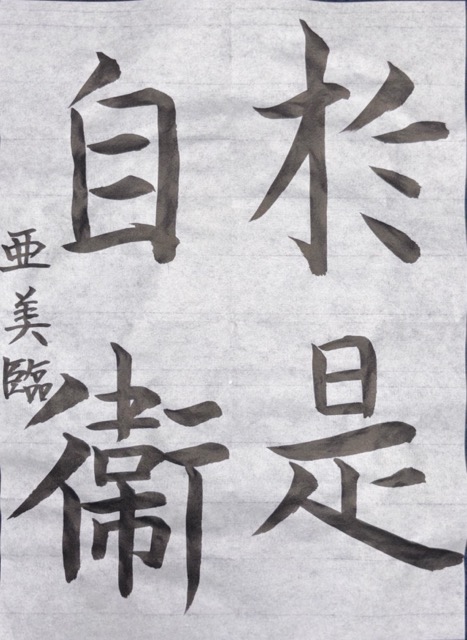 於是
自衛
亜美臨